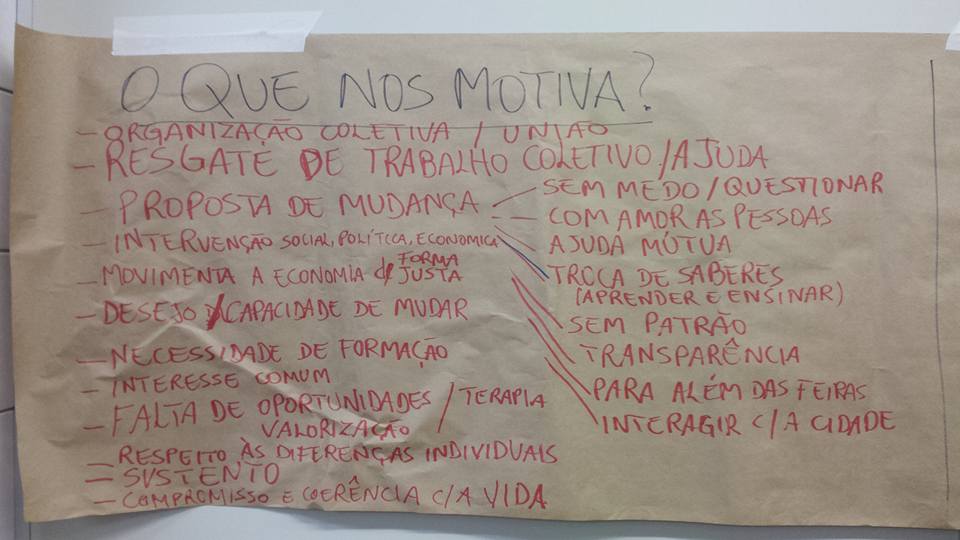 O QUE NOS MOTIVA?
- ORGANIZAÇÃO COLETIVA / UNIÃO
- RESGATE DE TRABALHO COLETIVO / AJUDA
- PROPOSTA DE MUDANÇA
- INTERVENÇÃO SOCIAL, POLÍTICA, ECONOMICA
- MOVIMENTA A ECONOMIA de FORMA JUSTA
- DESEJO / CAPACIDADE DE MUDAR
- NECESSIDADE DE FORMAÇÃO
- INTERESSE COMUM
- FALTA DE OPORTUNIDADES / TERAPIA
- VALORIZAÇÃO
- RESPEITO ÀS DIFERENÇAS INDIVIDUAIS
- SUSTENTO
- COMPROMISSO E COERÊNCIA C/ A VIDA
SEM MEDO / QUESTIONAR
COM AMOR AS PESSOAS
AJUDA MÚTUA
TROCA DE SABERES
(APRENDER E ENSINAR)
SEM PATRÃO
TRANSPARÊNCIA
PARA ALÉM DAS FEIRAS
INTERAGIR C/ A CIDADE